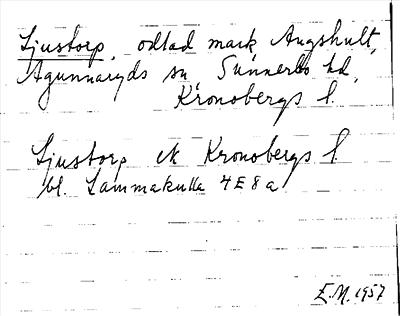 Ljustorp, odlad mark, Augshult,
Agunnaryds sn, Sunnerbo hd,
Kronobergs l.
Ljustorp ek Kronobergs l.
bl. Lammakulla 4E8a
E.M. 1957